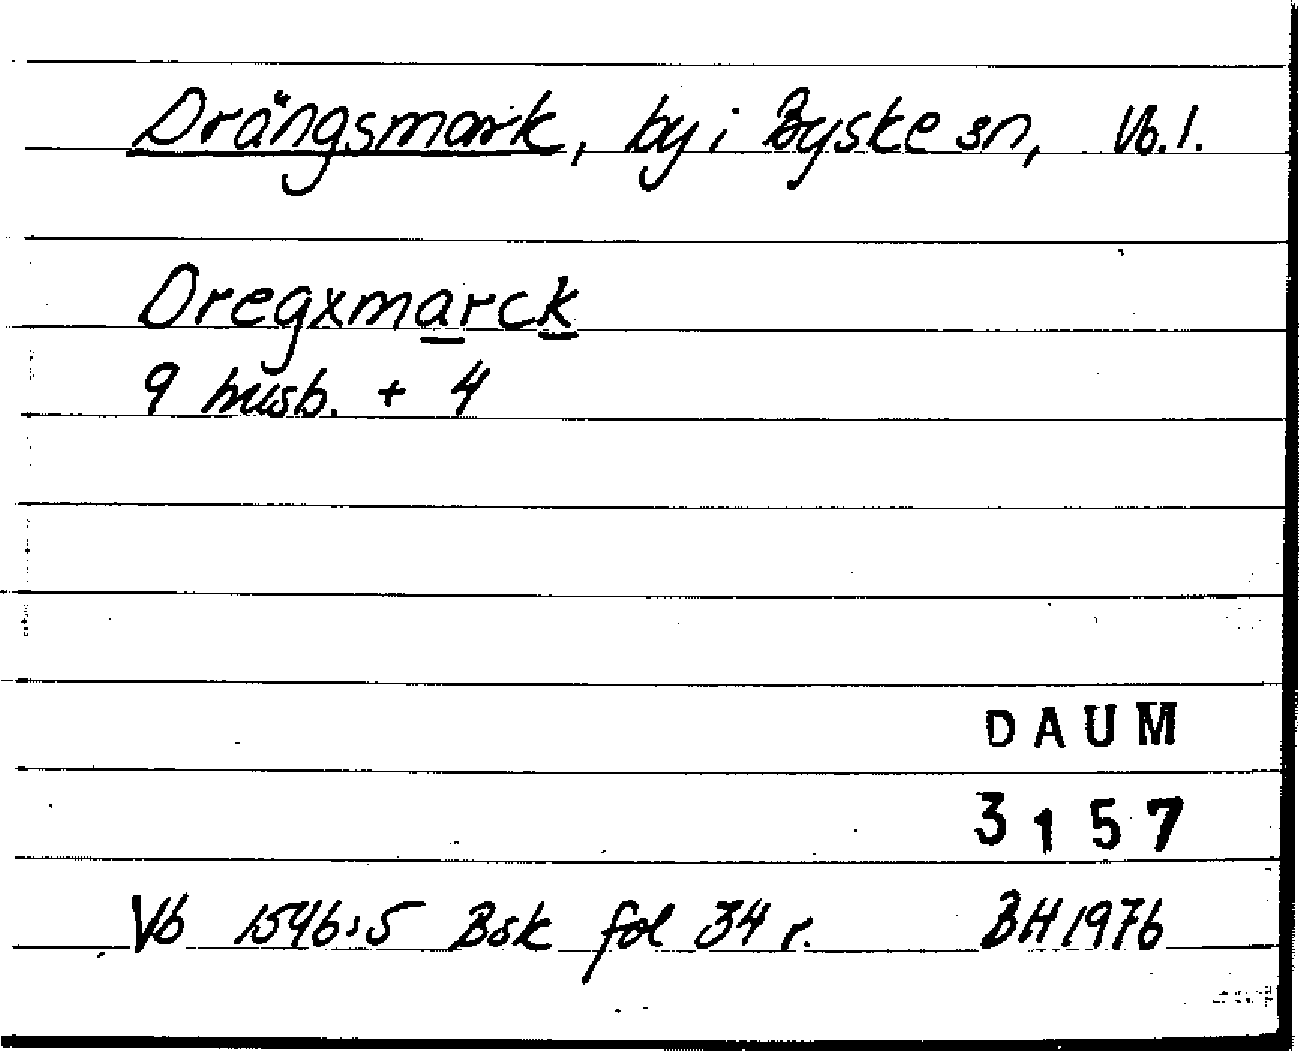 Drängsmark, by i Byske sn, Vb. l.
Dregxmarck
9 husb. + 4
DAUM
3157
Vb 1546:5 Bsk fol 34 r. BH 1976